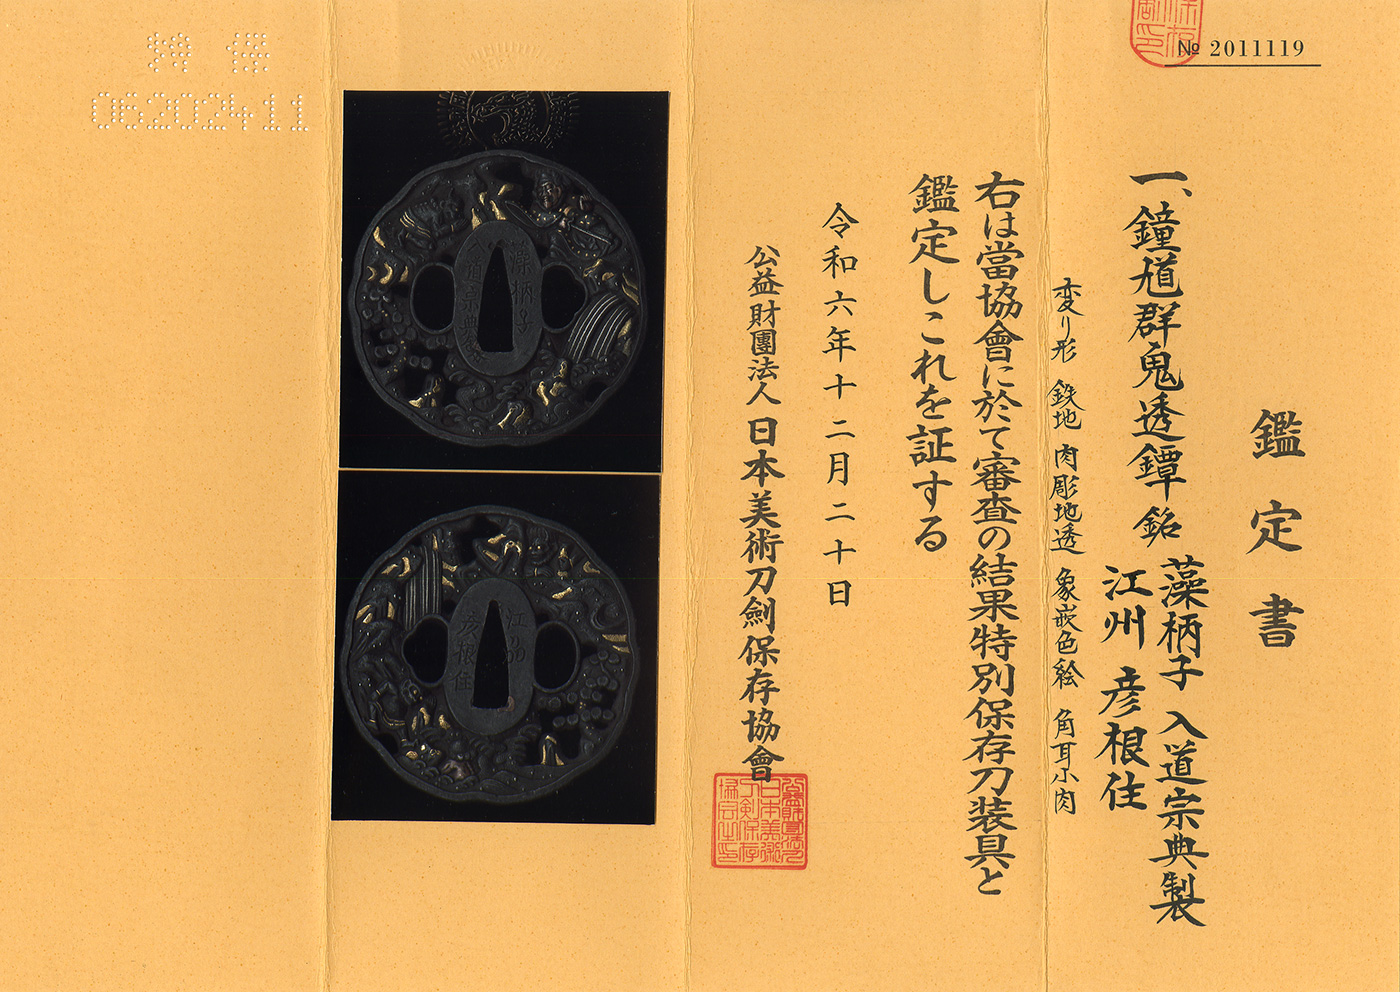 № 2011119
鑑定書
一、鐘馗群鬼透鐔 銘 藻柄子 入道宗典製
江州 彦根住
変り形 鉄地 肉彫地透 象嵌色絵 角耳小肉
右は當協會に於て審査の結果特別保存刀装具と
鑑定しこれを証する
令和六年十二月二十日
公益財團法人 日本美術刀劍保存協會
06202411
藻柄子
入道宗典製
江州
彦根住